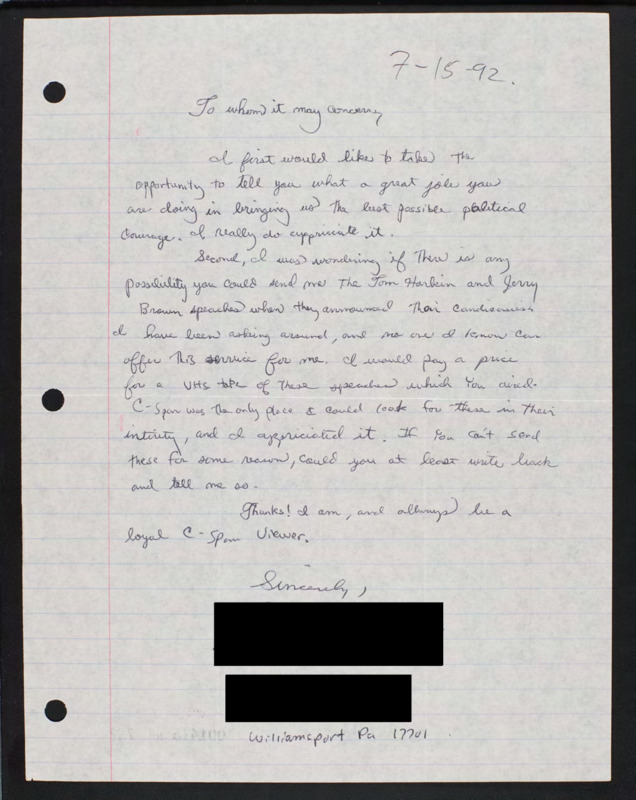 7-15-92.
To whom it may concern,
I first would like to take the
opportunity to tell you what a great job you
are doing in bringing us the best possible political
courage. I really do appriciate it.
Second, I was wondering if there is any
possibility you could send me the Tom Harkin and Jerry
Brown speaches when they announced their
I have been asking around, and no one I know can
offer this service for me. I would pay a price
for a VHS tape of these speaches which you aired.
C-Span was the only place I could look for these in their
intirity, and I appriciated it. If you can't send
these for some reason, could you at least write back
and tell me so.
Thanks! I am, and allways be a
loyal C-Span Viewer.
Sincerely,
Williamsport Pa 17701